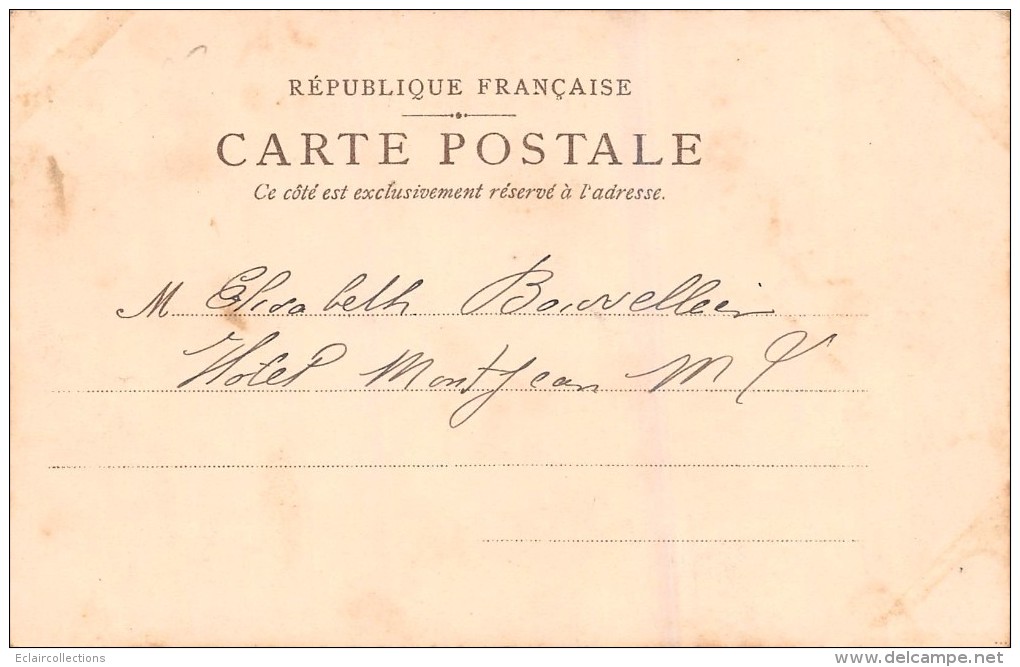 RÉPUBLIQUE FRANÇAISE
CARTE POSTALE
Ce côté est exclusivement réservé à l'adresse.
M Elisabeth
Hotel Montjean M
Eclaircollections
delcampe.net